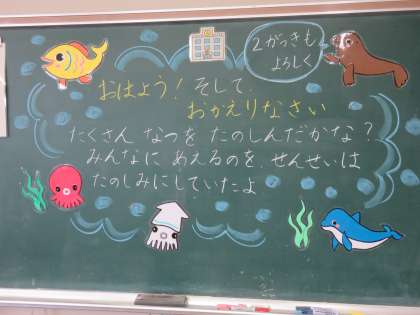 2がっきも
よろしく
おはよう！そして、
おかえりなさい
たくさん なつを たのしんだかな？
みんなに あえるのを、せんせいは
たのしみにしていたよ